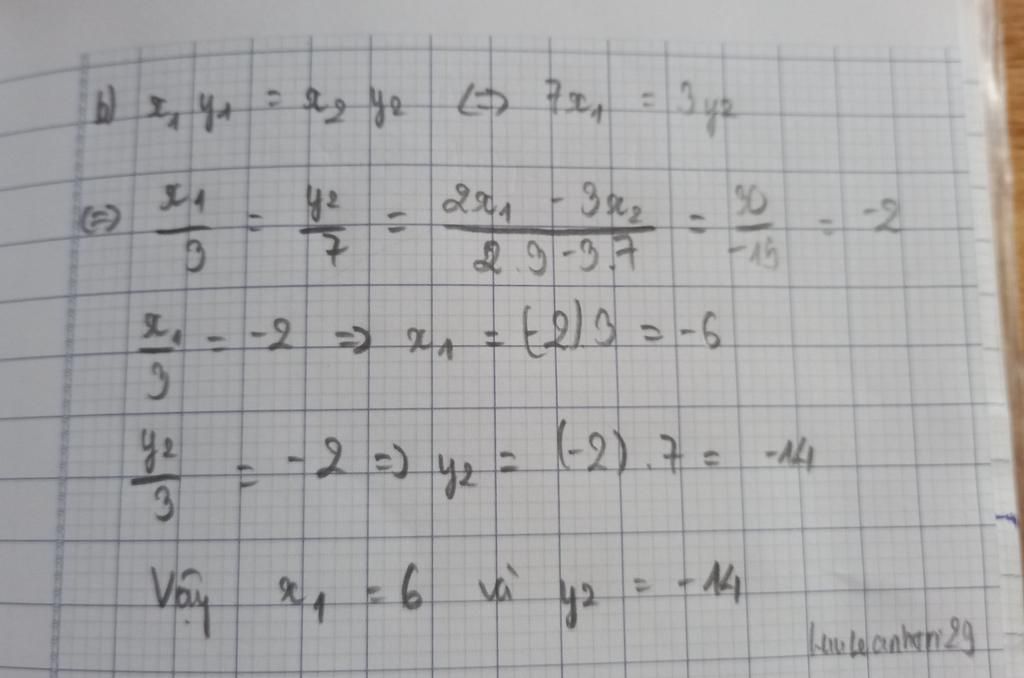 b) x₁ y₁ = x₂ y₂ (=) 7x₁ = 3y₂
(=) x₁/3 = y₂/7 = (2x₁ - 3x₂)/(2.3-3.7) = 30/-15 = -2
x₁/3 = -2 => x₁ = (-2) 3 = -6
y₂/3 = -2 => y₂ = (-2) . 7 = -14
Vậy x₁ = 6 và y₂ = -14